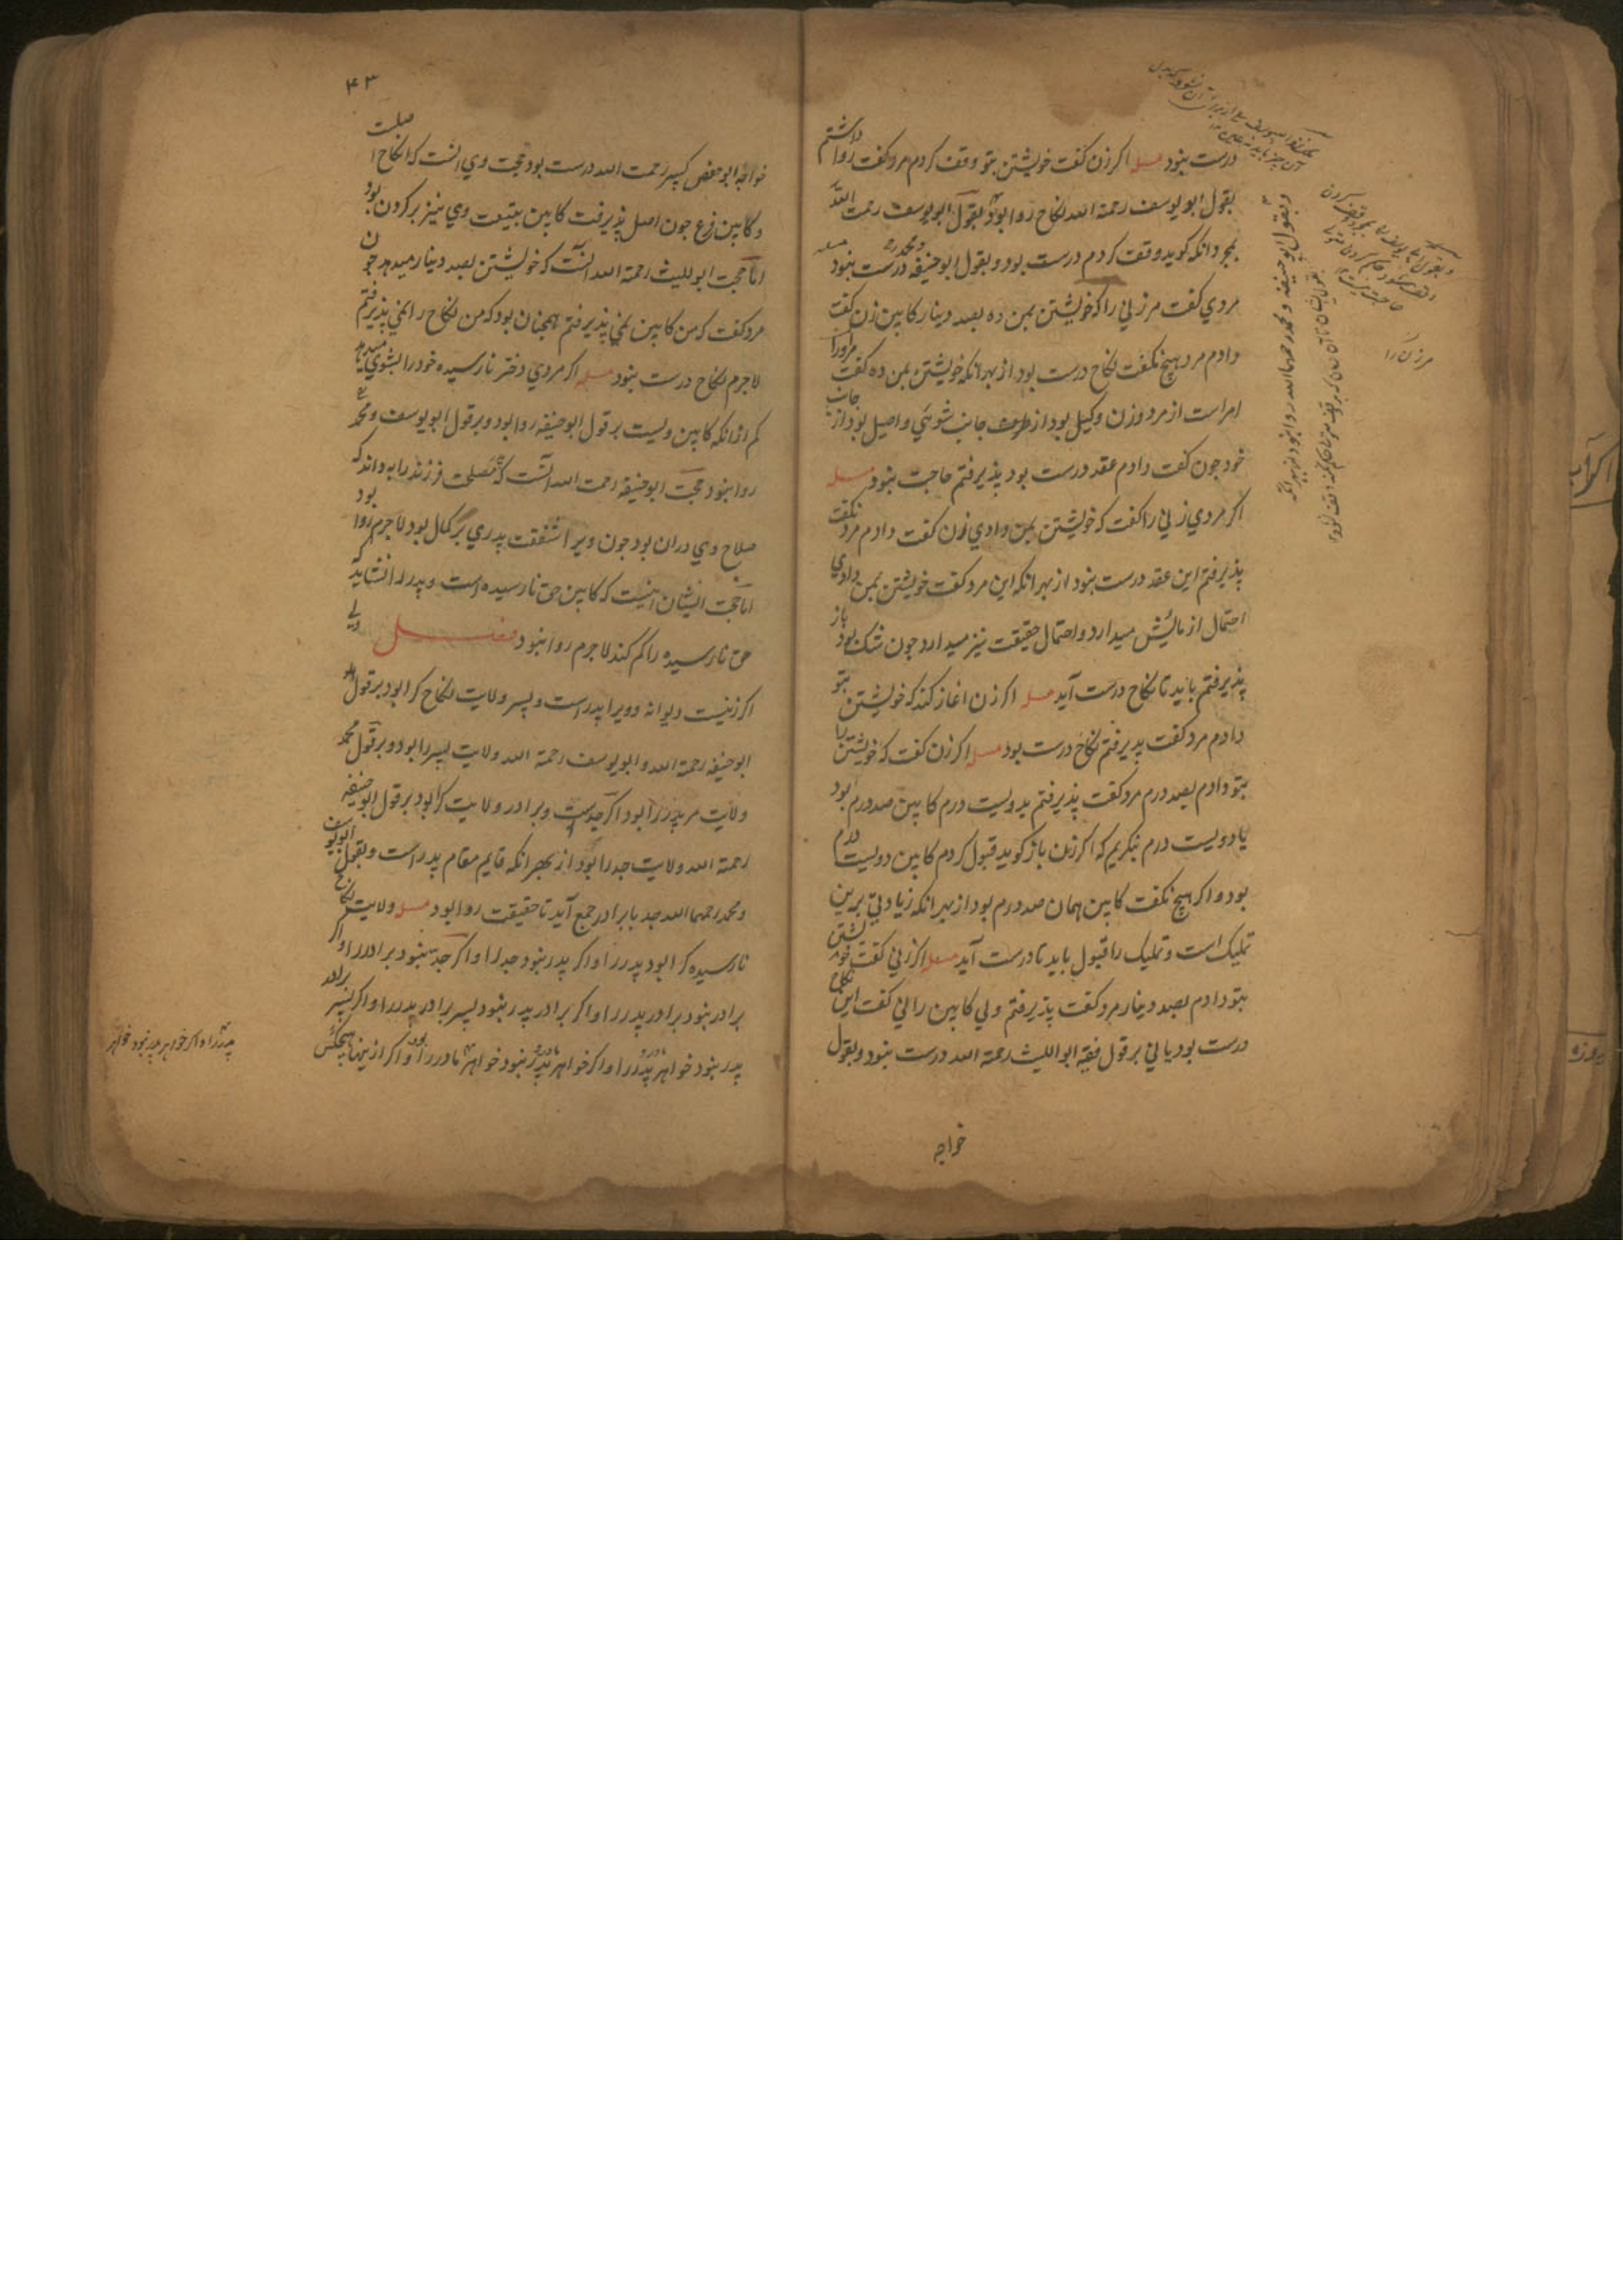 درست نبود مسله اکر زن کفت خویشتن بتو وقف کردم مرد کفت روا داشتم
بقول ابو یوسف رحمة الله نکاح روا بود بقول ابو یوسف رحمت الله
بمجرد انکه کوید وقف کردم درست بود و بقول ابو حنیفه و محمد رح درست نبود مسله
مردي کفت مر زني را که خویشتن بمن ده بصد دینار کابین زن کفت
دادم مرد هیچ نکفت نکاح درست بود از بهر انکه خویشتن بمن ده کفت مر او را
امر است از مرد و زن وکیل بود از طرف جانب شوئي و اصیل بود از جانب
خود جون کفت دادم عقد درست بود پذیرفتم حاجت نبود مسله
اکر مردي زني را کفت که خویشتن بمن دادي زن کفت دادم مرد نکفت
پذیرفتم این عقد درست نبود از بهر انکه این مرد کفت خویشتن بمن دادي
احتمال ازمائیش میدارد و احتمال حقیقت نیز میدارد جون شک بود باز
پذیرفتم باید تا نکاح درست آید مسله اکر زن اغاز کند که خویشتن بتو
دادم مرد کفت پدیرفتم نکاح درست بود مسله اکر زن کفت که خویشتن را
بتو دادم بصد درم مرد کفت پذیرفتم بدویست درم کابین صد درم بود
یا دویست درم نکریم که اکر زن باز کوید قبول کردم کابین دویست درم
بود و اکر هیچ نکفت کابین همان صد درم بود از بهر انکه زیادتي برین
تملیک است و تملیک را قبول باید تا درست آید مسله اکر زني کفت خویشتن
بتو دادم بصد دینار مرد کفت پذیرفتم ولي کابین را ني کفت این نکاح
درست بود یا ني بر قول فقیه ابو اللیث رحمة الله درست نبود و بقول
خواجه
وبقول ابو حنیفه و محمد رحمهما الله روا نبود از بهر انکه
مر زن را
۴۳
خواجه ابو حفص کبیر رحمت الله درست بود حجت وي انست که نکاح اصلست
و کابین فرع جون اصل پذیرفت کابین بتبعت وي نیز بر کردن بود
اما حجت ابو للیث رحمة الله انست که خویشتن بصد دینار میدهد جون
مرد کفت که من کابین نمي پذیرفتم همجنان بود که من نکاح را نمي پذیرفتم
لاجرم نکاح درست نبود مسله اکر مردي دختر نارسیده خود را بشوي میدهد
کم از انکه کابین ویست بر قول ابو حنیفه روا بود و بر قول ابو یوسف و محمد رح
روا نبود حجت ابو حنیفه رحمت الله آنست که مصلحت فرزند را به داند که
صلاح وي دران بود جون ویرا شفقت پدري بر کمال بود لاجرم روا بود
اما حجت ایشان اینست که کابین حق نارسیده است و پدر را نشاید که
حق نارسیده را کم کند لاجرم روا نبود فصل ولي
اکر زنیست دیوانه و ویرا پدر است و پسر ولایت نکاح کرا بود بر قول
ابو حنیفه رحمة الله و ابو یوسف رحمة الله ولایت پسر را بود و بر قول محمد
ولایت مر پدر را بود اکر جدست و برادر ولایت کرا بود بر قول ابو حنیفه
رحمة الله ولایت جد را بود از بهر انکه قایم مقام پدر است و بقول ابو یوسف
و محمد رحمهما الله جد با برادر جمع آید تا حقیقت روا بود مسله ولایت نکاح
نارسیده کرا بود پدر را و اکر پدر نبود جد را و اکر جد نبود برادر را و اکر
برادر نبود برادر پدر را و اکر برادر پدر نبود پسر برادر پدر را و اکر پسر برادر
پدر نبود خواهر پدر را و اکر خواهر پدر نبود خواهر مادر را بود و اکر ازینها هیجکس
پدر را و اکر خواهر پدر نبود خواهر